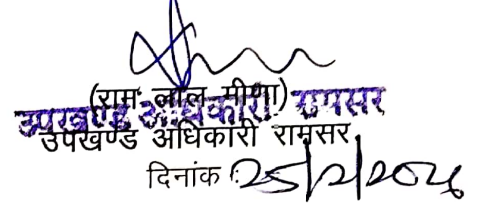 (राम लाल मीणा)
उपखण्ड अधिकारी रामसर
उपखण्ड अधिकारी रामसर
दिनांक :